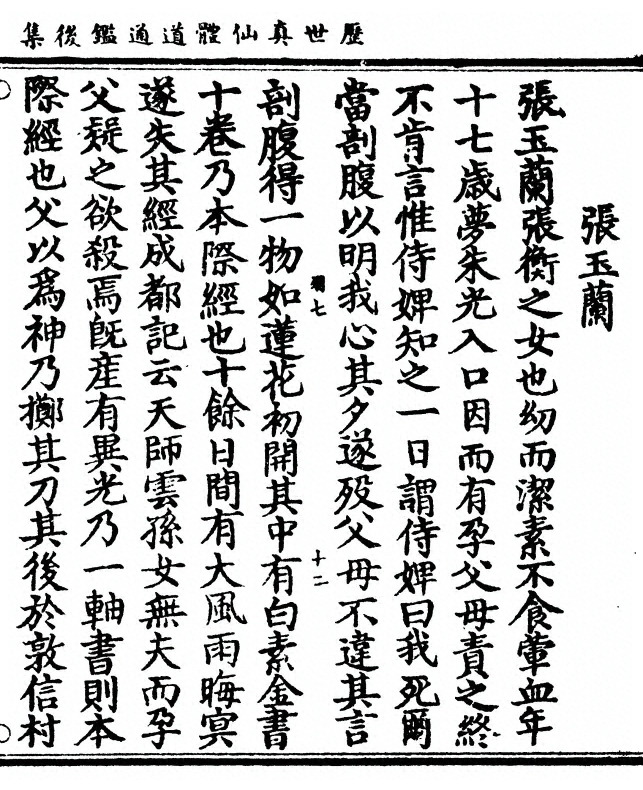 歷世真仙體道通鑑後集
張玉蘭
張玉蘭張衡之女也幼而潔素不食葷血年
十七歲夢朱光入口因而有孕父母責之終
不肯言惟侍婢知之一日謂侍婢曰我死爾
當剖腹以明我心其夕遂歿父母不違其言
獨七
十二
剖腹得一物如蓮花初開其中有白素金書
十卷乃本際經也十餘日間有大風雨晦冥
遂失其經成都記云天師雲孫女無夫而孕
父疑之欲殺焉既産有異光乃一軸書則本
際經也父以為神乃擲其刀其後於敦信村